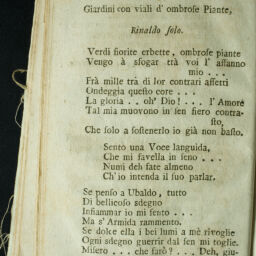 Giardini con viali d' ombrose Piante,
Rinaldo solo.
Verdi fiorite erbette, ombrose piante
Vengo à sfogar trà voi l' affanno
mio . . .
Frà mille trà di lor contrari affetti
Ondeggia questo core . . .
La gloria . . oh' Dio! . . . l' Amore
Tal mia muovono in sen fiero contra-
sto,
Che solo a sostenerlo io già non basto.
Sento una Voce languida,
Che mi favella in seno . . .
Numi deh fate almeno
Ch' io intenda il suo parlar.
Se penso a Ubaldo, tutto
Di bellicoso sdegno
Infiammar io mi sento . . .
Ma s' Armida rammento.
Se dolce ella i bei lumi a mè rivoglie
Ogni sdegno guerrir dal sen mi toglie.
Misero . . . che farò? . . . Deh, giu-